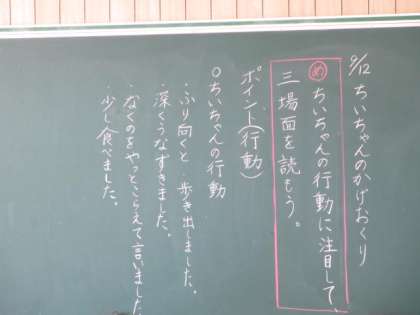 9/12 ちいちゃんのかげおくり
め ちいちゃんの行動に注目して、
三場面を読もう。
ポイント(行動)
○ちいちゃんの行動
・ふり向くと、歩き出しました。
・深くうなずきました。
・なくのをやっとこらえて言いました
・少し食べました。